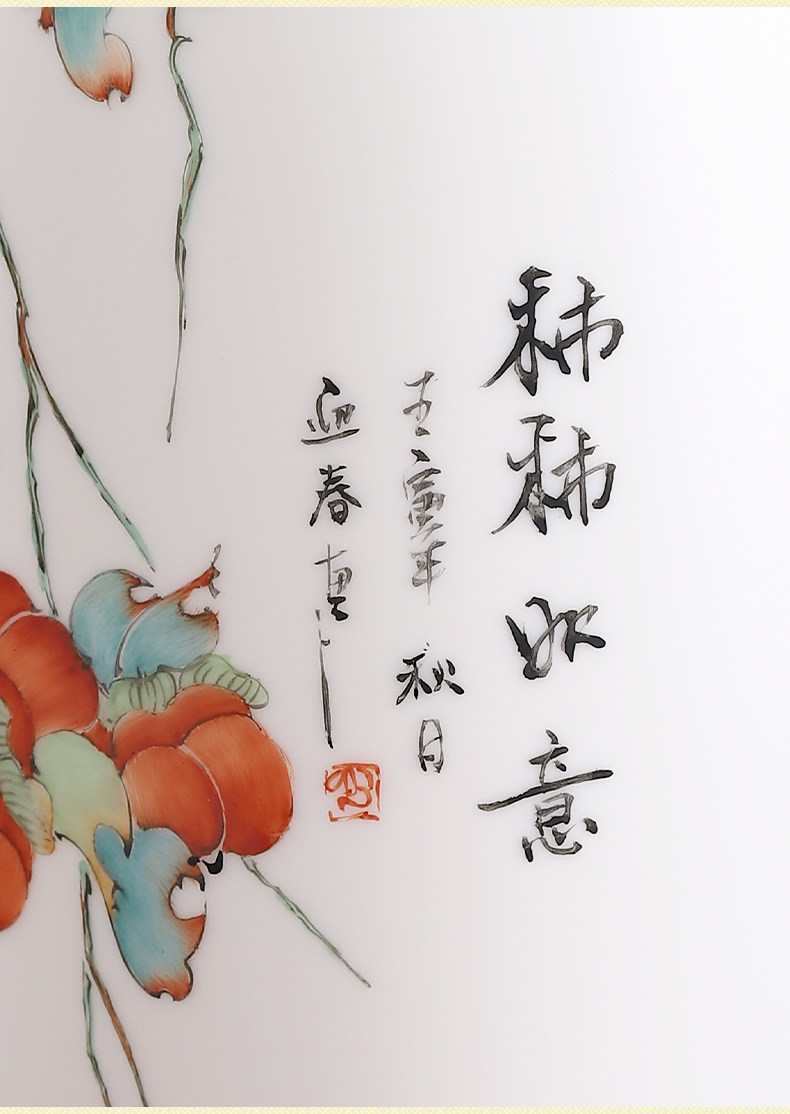 柿柿如意
壬寅年秋日
迎春